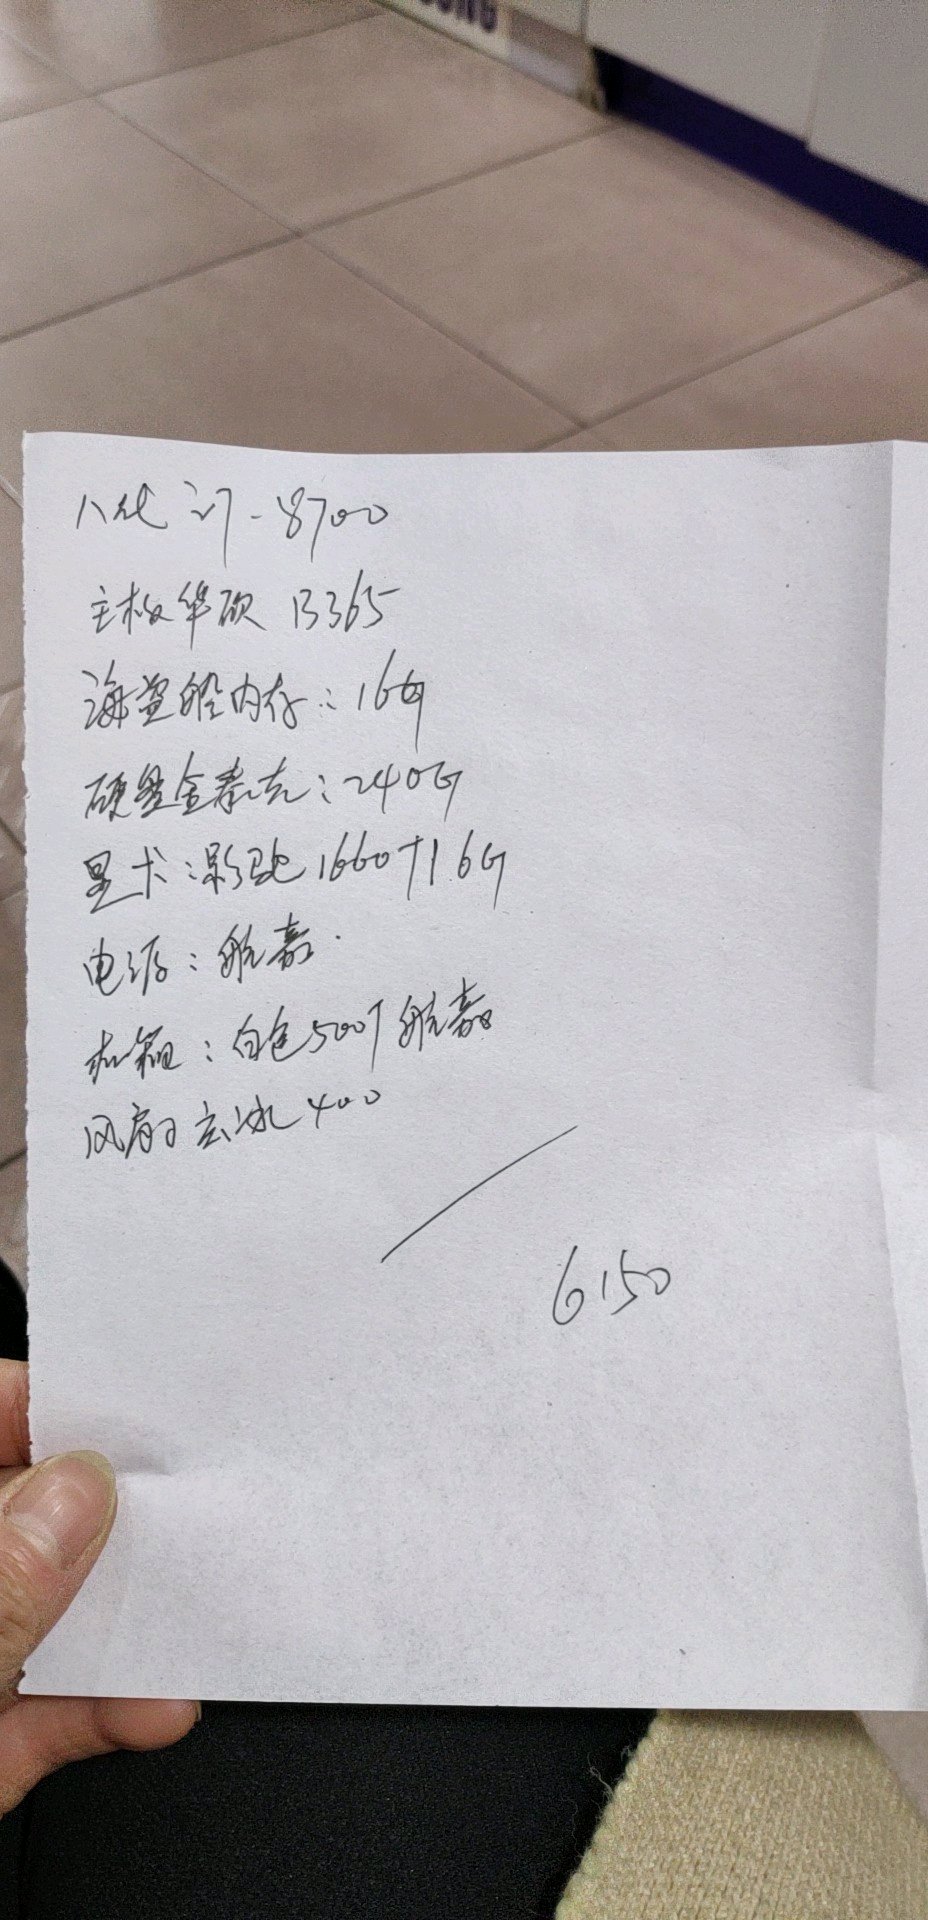 八代 i7-8700
主板华硕 B365
海盗船内存：16G
硬盘金泰克：240G
显卡：影驰1660Ti 6G
电源：航嘉
机箱：白色500T航嘉
风扇 玄冰400
6150